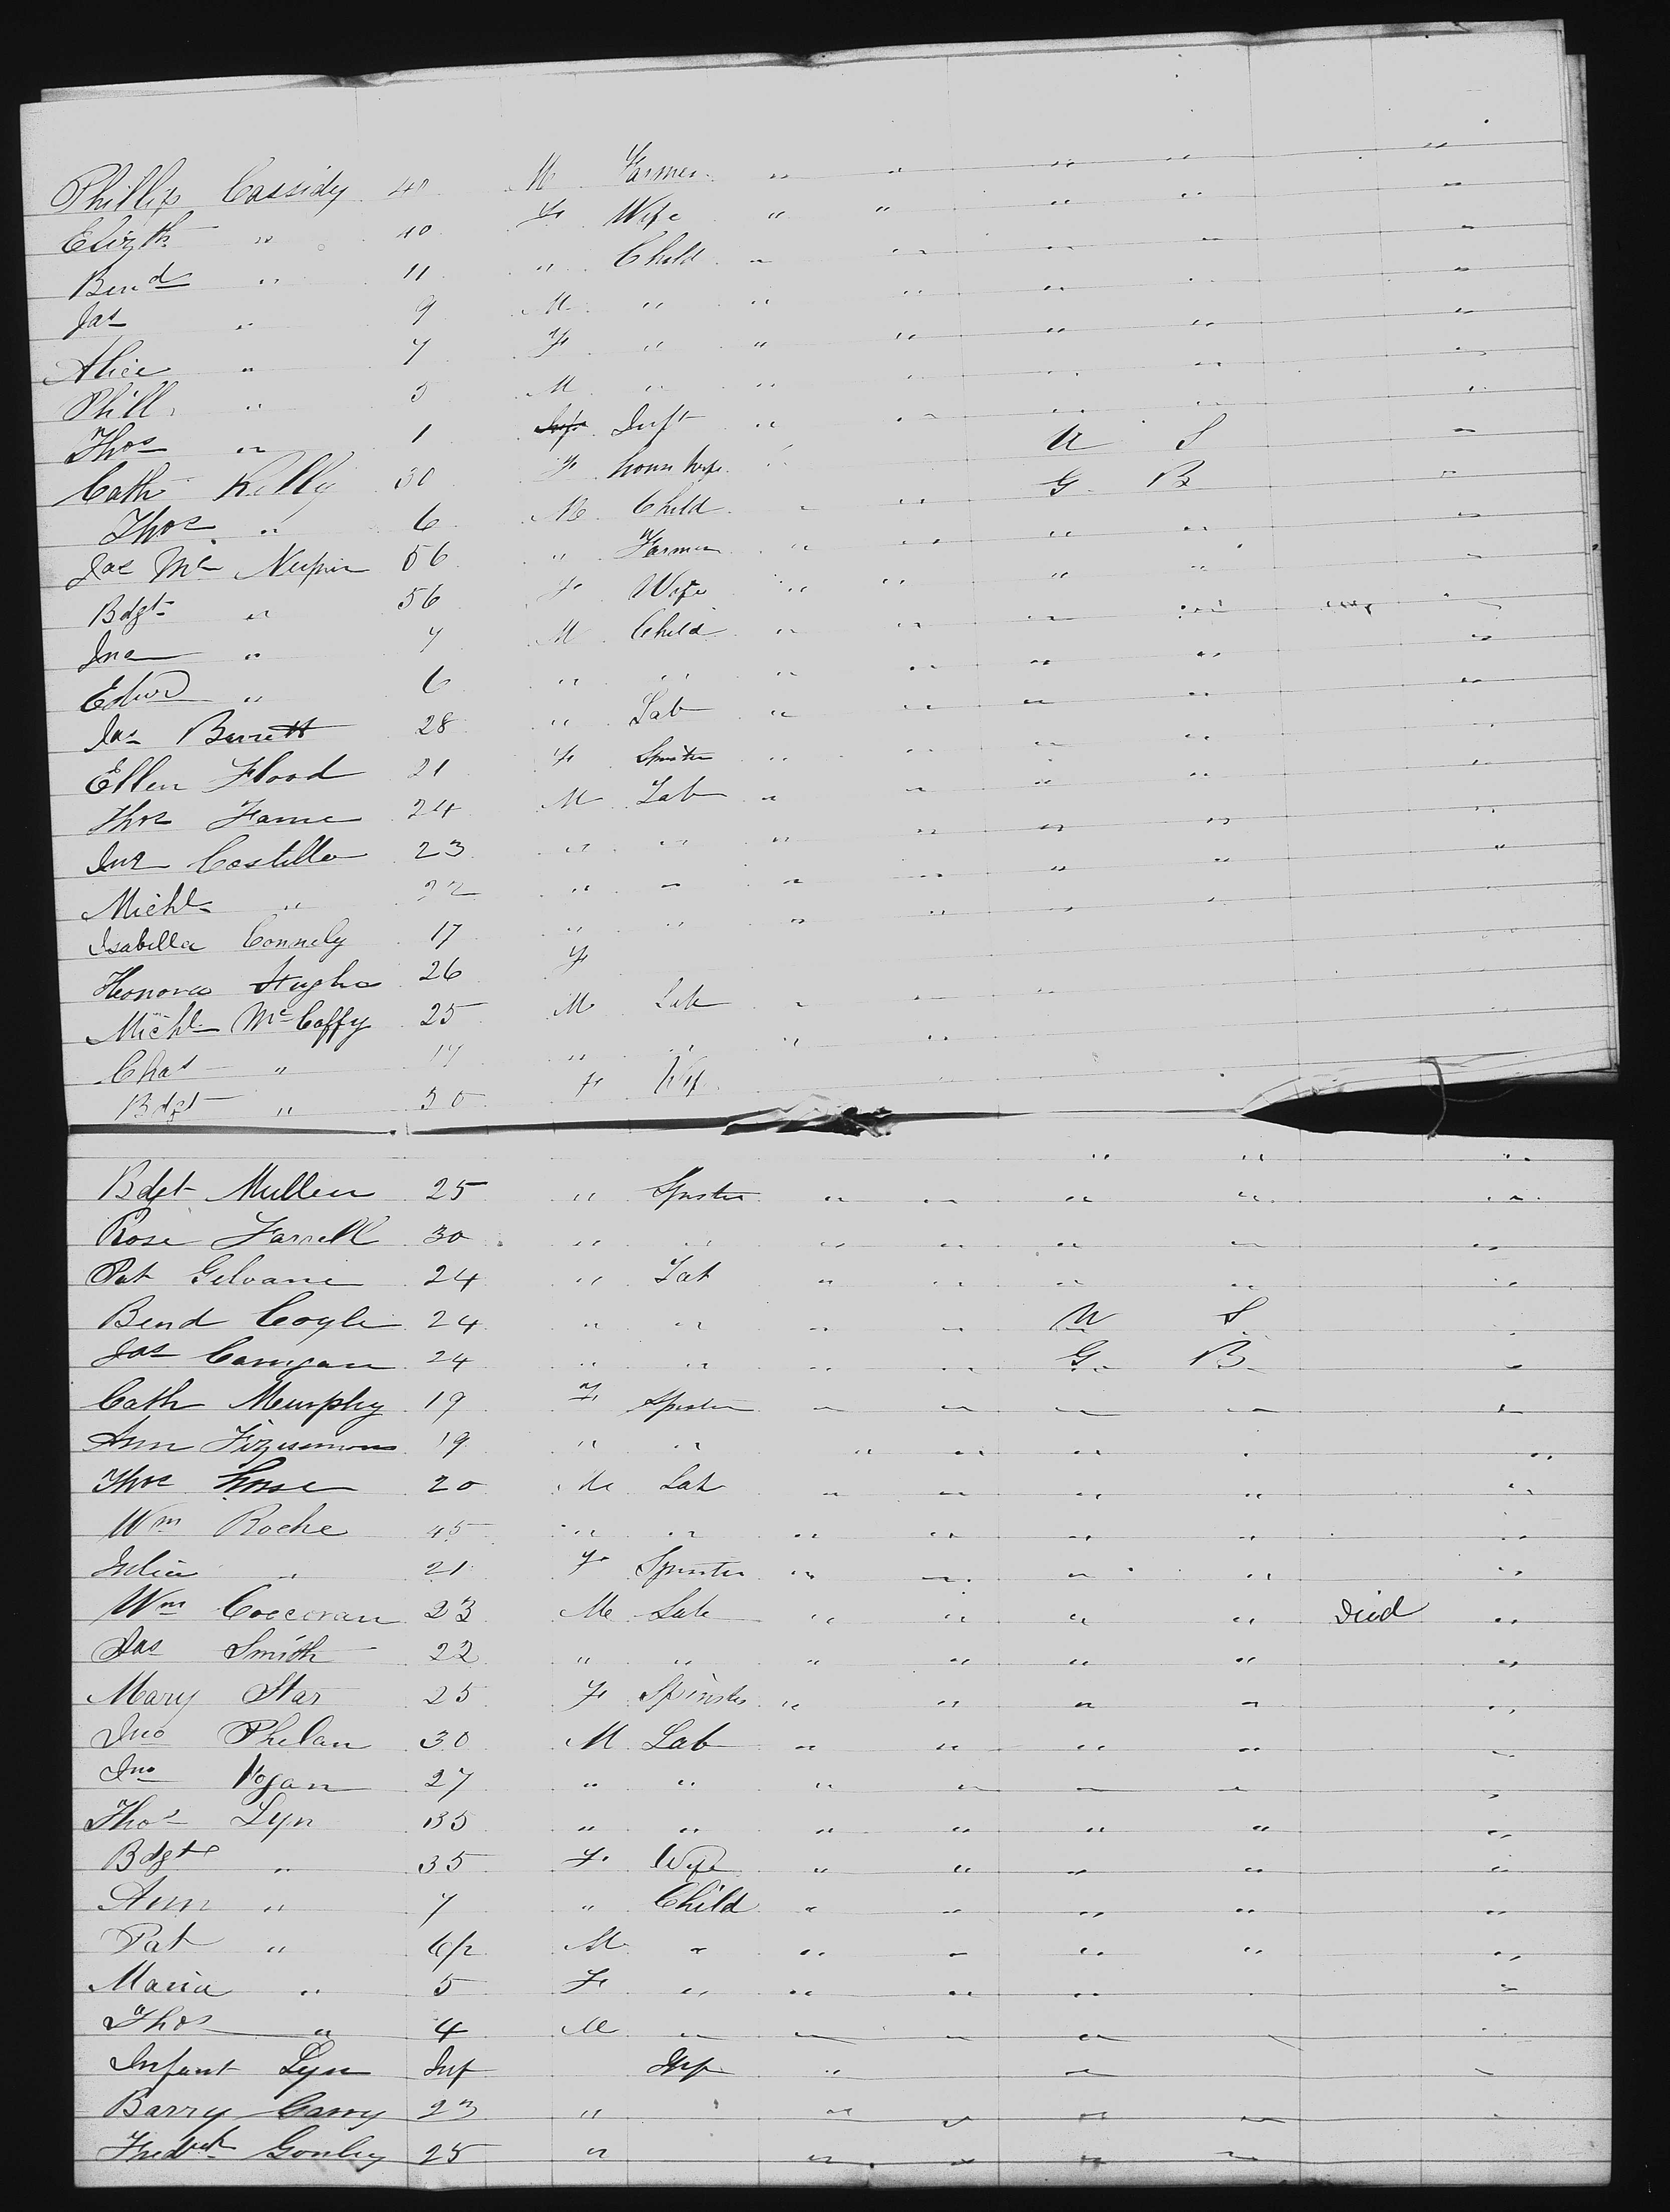 Phillip Cassidy 40 M Farmer " " " " "
Elizth " 40 F Wife " " " " "
Bend " 11 " Child " " " " "
Jas " 9 M " " " " " "
Alice " 7 F " " " " " "
Phill " 5 M " " " " " "
Thos " 1 Inft " " " " "
Cath Kelly 30 F House Wife " U S "
Thos " 6 M Child " " G B "
Jas Mc 56 " Farmer " " " " "
Bdgt " 56 F Wife " " " " "
Jno " 7 M Child " " " " "
Edwd " 6 " " " " " " "
Jas Barrett 28 " Lab " " " " "
Ellen Flood 21 F Spinster " " " " "
Thos 24 M Lab " " " " "
Jno Costillo 23 " " " " " " "
Michl " 22 " " " " " " "
Isabella Connely 17 " " " " " "
Honora Hughs 26 F
Michl McCaffy 25 M Lab " " "
Chas " 17 " " " "
Bdgt " 30 F Wife
" " "
Bdgt Mullen 25 " Spinster " " " " "
Rose Farrell 30 " " " " " " "
Pat Gilvane 24 " Lab " " " " "
Bend Coyle 24 " " " " U S "
Jas Carrigan 24 " " " " G B "
Cath Murphy 19 F Spinster " " " " "
Ann Fizisimons 19 " " " " " " "
Thos 20 M Lab " " " " "
Wm Roche 45 " " " " " " "
Julia " 21 F Spinster " " " " "
Wm Corcoran 23 M Lab " " " " Died "
Jas Smith 22 " " " " " " "
Mary Star 25 F Spinster " " " " "
Jno Phelan 30 M Lab " " " " "
Jno Hogan 27 " " " " " " "
Thos Lyn 35 " " " " " " "
Bdgt " 35 F Wife " " " " "
Ann " 7 " Child " " " " "
Pat " 6/2 M " " " " " "
Maria " 5 F " " " " " "
Thos " 4 M " " " " "
Infant Lyn Inf Inf " " "
Barry Garry 23 " " " " " "
Fredrick Gonley 25 " " " " "